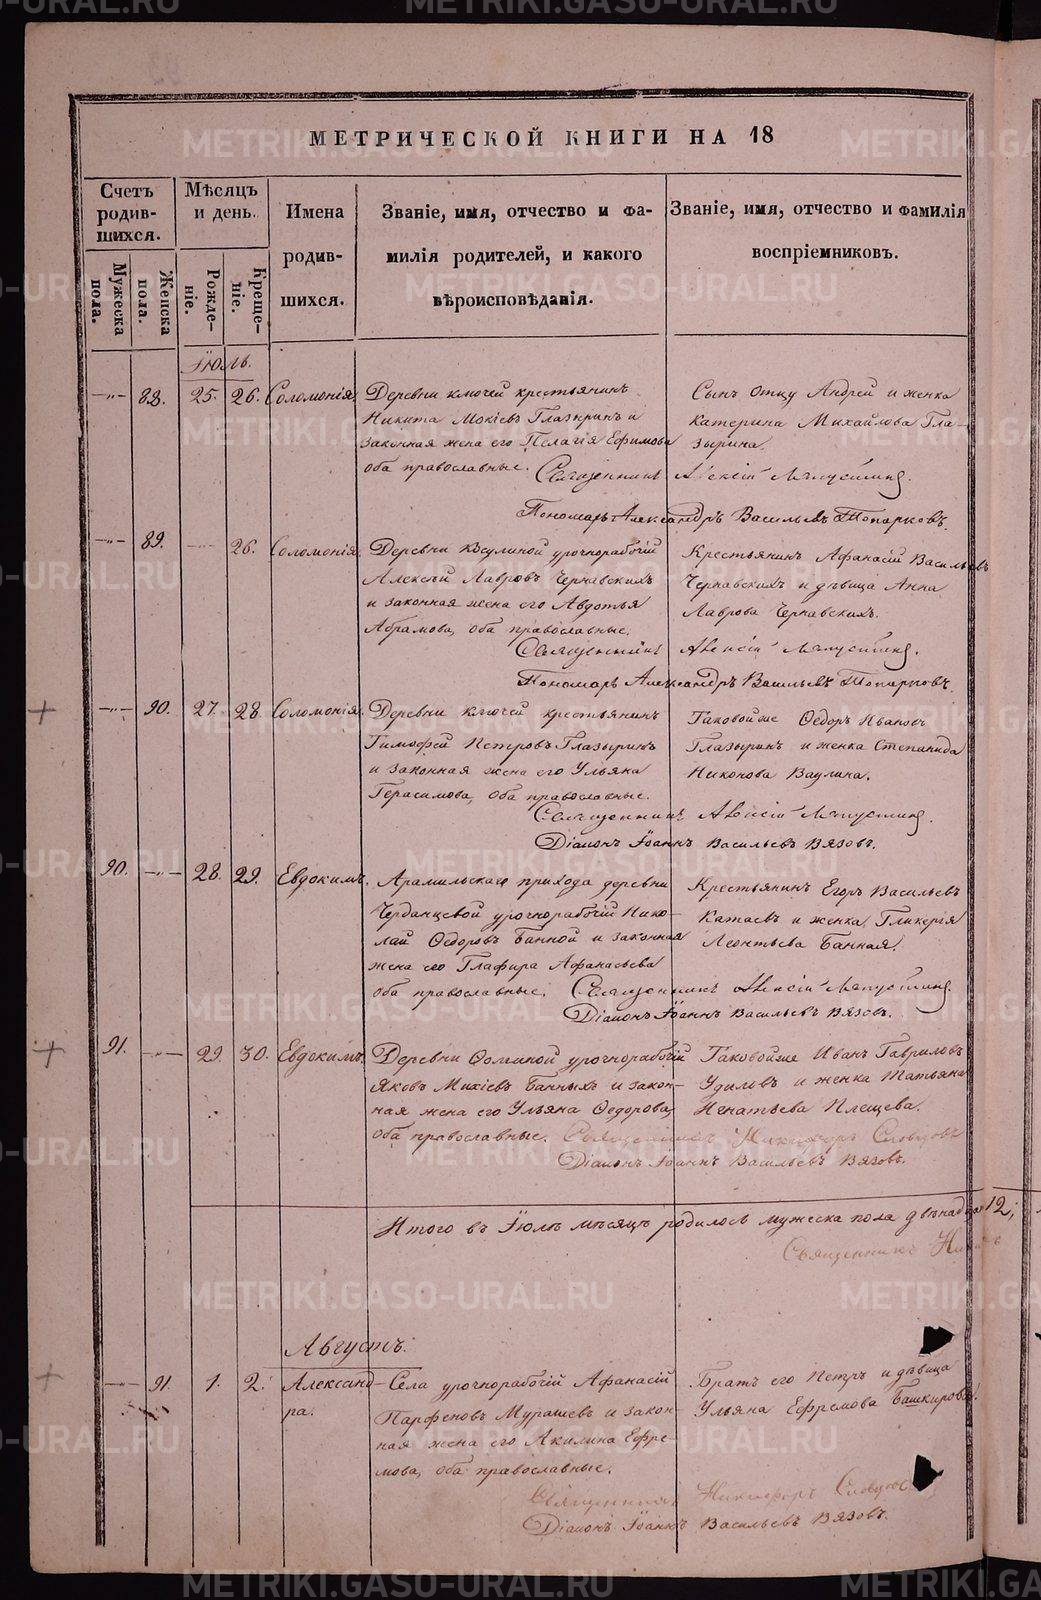 МЕТРИЧЕСКОЙ КНИГИ НА 18
Счетъ родив-шихся.
Мужеска пола.
Женска пола.
Мѣсяцъ и день.
Рожде-ніе.
Креще-ніе.
Имена родив-шихся.
Званіе, имя, отчество и фа-
милія родителей, и какого
вѣроисповѣданія.
Званіе, имя, отчество и фамилія
воспріемниковъ.
Іюль.
—„— 88. 25. 26. Соломонія.
Деревни ключей крестьянинъ
Никита Мокіевъ Глазыринъ и
законная жена его Пелагія Ефимова
оба православные.
Сынъ отцу Андрей и женка
Катерина Михайлова Гла-
зырина.
Священникъ Алексій
Пономарь Александръ Васильевъ Топарковъ.
—„— 89. — 26. Соломонія.
Деревни Косулиной урочнорабочій
Алексѣй Лавровъ Чернавскихъ
и законная жена его Авдотья
Абрамова, оба православные.
Крестьянинъ Афанасій Васильевъ
Чернавскихъ и дѣвица Анна
Лаврова Чернавскихъ.
Священникъ Алексій
Пономарь Александръ Васильевъ Топарковъ.
—„— 90. 27. 28. Соломонія.
Деревни ключей крестьянинъ
Тимофей Петровъ Глазыринъ
и законная жена его Ульяна
Герасимова, оба православные.
Таковойже Ѳедоръ Ивановъ
Глазыринъ и женка Степанида
Никонова Ваулина.
Священникъ Алексій
Діаконъ Іоаннъ Васильевъ Вязовъ.
90. —„— 28. 29. Евдокимъ.
Арамильскаго прихода деревни
Черданцевой урочнорабочій Нико-
лай Ѳедоровъ Банной и законная
жена его Глафира Афанасьева
оба православные.
Крестьянинъ Егоръ Васильевъ
Катаевъ и женка Гликерія
Леонтьева Банная.
Священникъ Алексій
Діаконъ Іоаннъ Васильевъ Вязовъ.
91. —„— 29. 30. Евдокимъ.
Деревни Фоминой урочнорабочій
Яковъ Михіевъ Банныхъ и закон-
ная жена его Ульяна Ѳедорова,
оба православные.
Таковойже Иванъ Гавриловъ
Удиловъ и женка Татьяна
Игнатьева Плещева.
Священникъ Никифоръ Словцовъ
Діаконъ Іоаннъ Васильевъ Вязовъ.
Итого въ Іюлѣ мѣсяцѣ родилось мужеска пола 12,
Священникъ
Августъ.
—„— 91. 1. 2. Александ-
ра.
Села урочнорабочій Афанасій
Парфеновъ Мурашевъ и закон-
ная жена его Акилина Ефре-
мова, оба православные.
Братъ его Петръ и дѣвица
Ульяна Ефремова Башкирова.
Священникъ Никифоръ
Діаконъ Іоаннъ Васильевъ Вязовъ.
METRIKI.GASO-URAL.RU